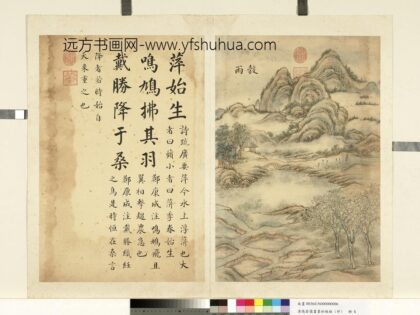 远方书画网-www.yfshuhua.com
穀雨
萍始生
詩疏廣要萍今水上浮萍也大
者曰蘋小者曰萍季春始生
鳴鳩拂其羽
鄭康成注鳴鳩飛且
翼相擊趨農急也
戴勝降于桑
鄭康成注戴勝織紝
之鳥是時恒在桑言
降者若時始自
天来重之也